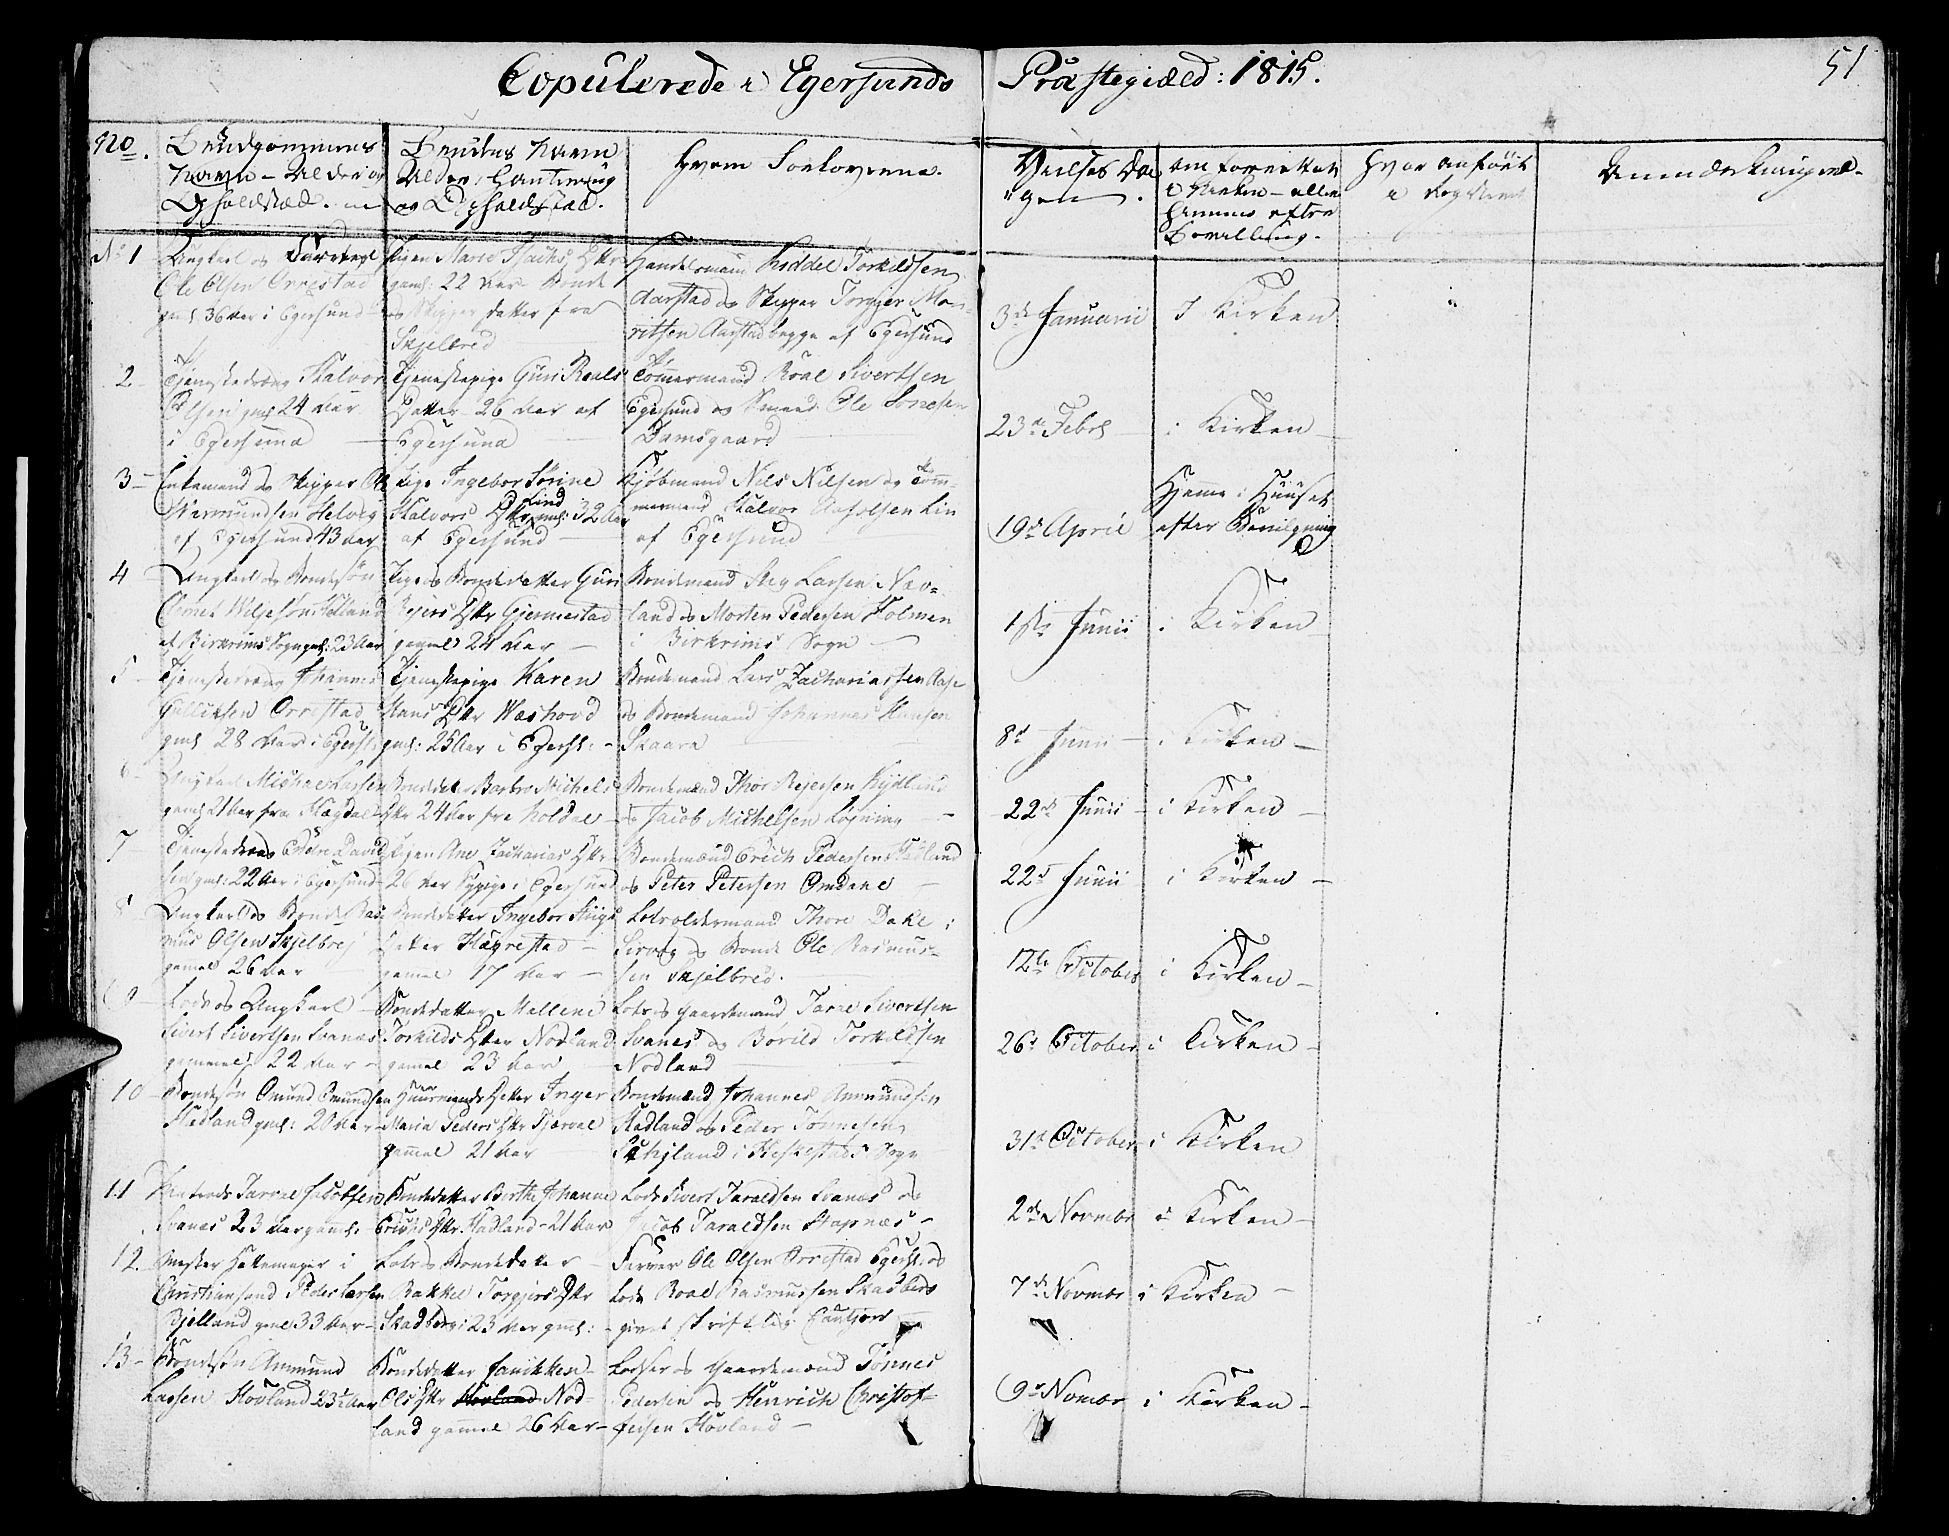 Copulerede i Egersunds Præstegiæld: 1815.
51
No.
Brudgommens
Navn - Alder og
Opholdsted.
Brudens Navn
Alder, Handtering
og Opholdsstæd.
Hvem Forloverne.
Vielses Da-
gen.
Om forrettet
i Kirken - eller
hiemme efter
Bevilling.
Hvor anført
i Registeret
Anmærkninger.
No 1
Ungkarl og
Ole Olsen Orrestad
gml 36 Aar i Egersund
Pigen Marie Isachs Dttr
gaml: 22 Aar Bonde
og Skipper datter fra
Skjelbred
Handelsmand Liddel Torkildsen
Aarstad og Skipper Torgjer Mo-
ritsen Aarstad begge af Egersund
3de Januarii
I Kirken
2
Tjenestedreng Halvor
Olsen gml 24 Aar
i Egersund
Tjenestepige Guri Roals
Datter 26 Aar af
Egersund
Tømmermand Roal Sivertsen
Egersund og Smeed Ole Sonesen
Damsgaard
23de Febr
i Kirken
3
Enkemand og Skipper Ole
Warmundsen Helvig
af Egersund 43 Aar
Pige Ingebor Sørine
Halvors Dttr Lind gml: 32 Aar
af Egersund
Kjøbmand Nils Nilsen og Tøm-
mermand Halvor Aafolsen Lin
af Egersund
19de April
Hjeme i Huuset
efter Bevilgning
4
Ungkarl og Bondesøn
Omet Wilhesøn Hetland
af Birkrims Sogn gml. 23 Aar
Pige og Bondedatter Guri
Rejers Dttr Gjermestad
gamel 24 Aar
Bondemand Steg Larsen Nav-
land og Morten Pedersen Holmen
i Birkrims Sogn
1ste Junii
i Kirken
5
Tjenestedreng Johannes
Gulliksen Orrestad
gml 28 Aar i Egersd:
Tjenestepige Karen
Hans Dttr Wæshovd
gml: 25 Aar i Egersd:
Bondemand Lars Zachariassen Aase
og Bondemand Johannes Hansen
Skaara
8de Junii
i Kirken
6
Ungkarl Michael Larsen
gaml 21 Aar fra Mægdal
Bondedatter Barbro Michels
Dttr 24 Aar fra Holdal
Bondemand Thor Rejersen Kydland
og Jacob Michelsen Løgning
22de Junii
i Kirken
7
Tienestedreng Eden David
sen gml: 22 Aar i Egersund
Pigen Ane Zacharias Dttr
26 Aar i Egersund
Bondemænd Erich Pedersen Hadland
og Peter Petersen Omdahl
22de Junii
i Kirken
8
Ungkarl og Bonde Ras-
mus Olsen Skjelbrej
gamel 26 Aar
Bondedatter Ingebor Stigs
Datter Hægrestad
gamel 17 Aar
Lotsoldermand Thore Dahl i
Sirvog og Bonde Ole Rasmus-
sen Skjelbred.
12te October
i Kirken
9
Lods og Ungkarl
Sivert Sivertsen Svanæs
gammel 22 Aar
Bondedatter Mallene
Torkilds Dtter Nodland
gamel 23 Aar
Lots og Gaardmand Tarel Sivertsen
Svanes og Børild Torkildsen
Nodland
26de October
i Kirken
10
Bondesøn Omund Omundsen
Hadland gml: 20 Aar
Huusmands Datter Inger
Maria Peders Dttr Tjørval
gammel 21 Aar
Bondemand Johannes Ammundsen
Hadland og Peder Tønnesen
i Heskestads Sogn
31te October
i Kirken
11
Tarral Jacobsen
Svanæs 23 Aar gammel
Bondedatter Berthe Johanne
Erichs Dttr. Hadland - 21 Aar
Lods Sivert Taraldsen Svanæs og
Jacob Taraldsen Stapnæs
2den Novmbr
i Kirken
12.
Mester Hattemager i
Christiansand Peder Larsen
Bjelland gml 33 Aar
Lots og Bondedatter
Rakkel Torgjers Dttr
Skadberg: 23 Aar gml:
Farver Ole Olsen Orrestad Egersd. og
Lods Roal Rasmussen Skadberg
givet skriftlig Caution
7de Novmbr
i Kirken
13
Bondesøn Ammund
Larsen Hovland 23 Aar
Bondedatter Janikken
Ols Dttr Nod-
land gammel 26 Aar
Lodser og Gaardmand Tønnes
Pedersen og Henrich Christof-
fersen Hovland
9de Novmbr
i Kirken